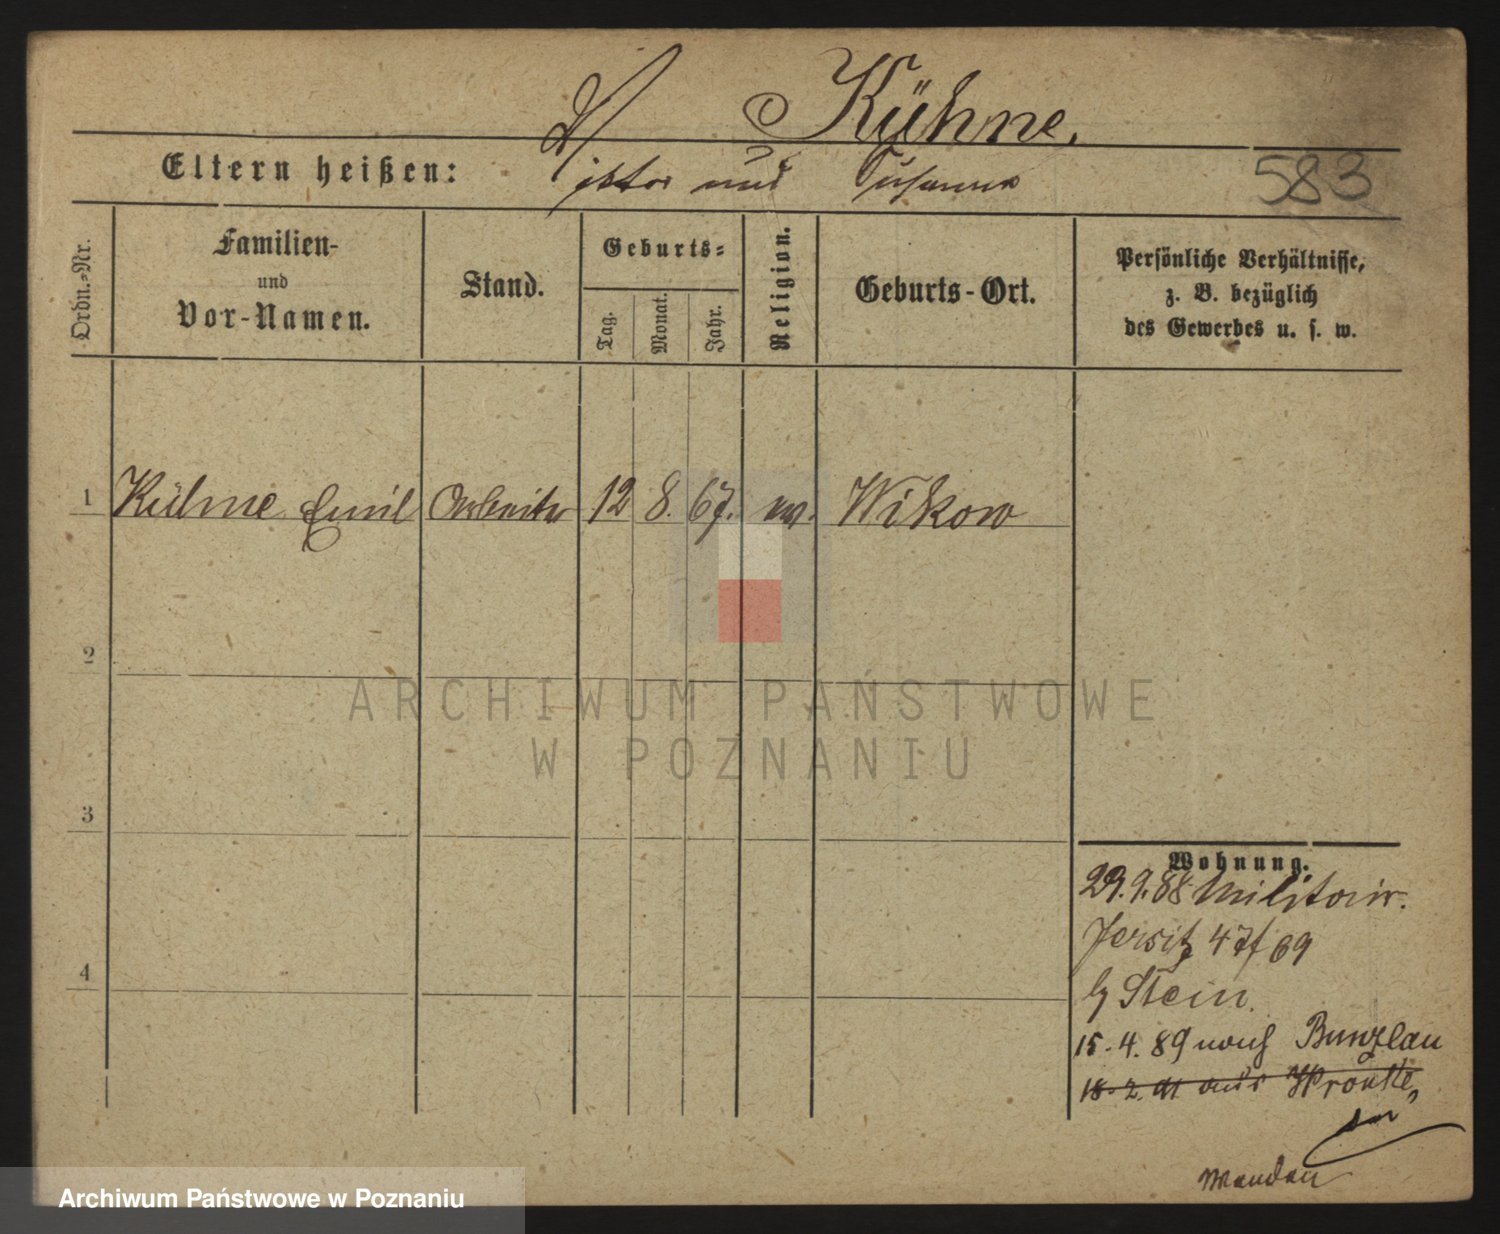 Kühne.
583
Eltern heißen: Viktor und Susanna
Ordn.-Nr.
Familien-
und
Vor-Namen.
Stand.
Geburts-
Tag.
Monat.
Jahr.
Religion.
Geburts-Ort.
Persönliche Verhältnisse,
z. B. bezüglich
des Gewerbes u. s. w.
1 Kühne Emil Arbeiter 12 8. 67. Wikow
2
3
4
ARCHIWUM PAŃSTWOWE
W POZNANIU
Wohnung.
29.9.88 Militair.
Jersitz 47/69
Stein.
15.4.89 nach Bunzlau
18.2.91 aus Wronke,
Wenden
Archiwum Państwowe w Poznaniu